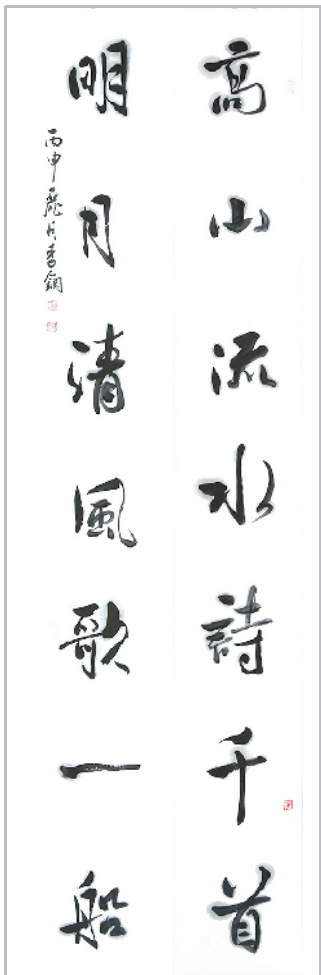 高山流水詩千首
明月清風歌一船
丙申龐月書鋼